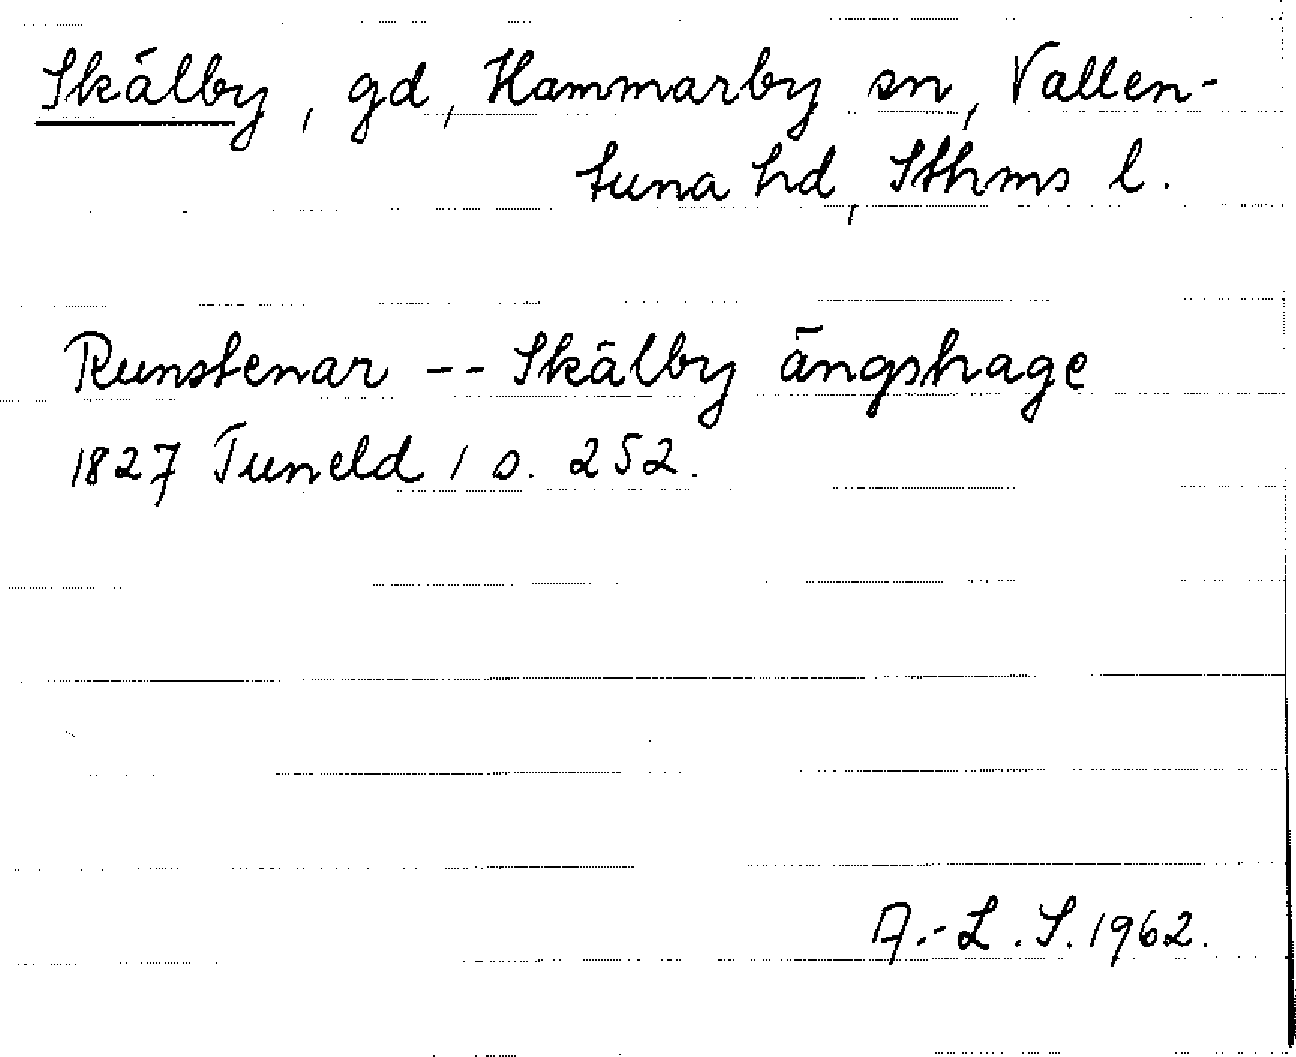 Skälby, gd, Hammarby sn, Vallen-
tuna hd, Sthms l.
Runstenar -- Skälby ängshage
1827 Tuneld 1 s. 252.
A.-L. S. 1962.